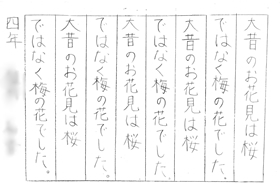 大昔のお花見は桜
ではなく梅の花でした。
大昔のお花見は桜
ではなく梅の花でした。
大昔のお花見は桜
ではなく梅の花でした。
大昔のお花見は桜
ではなく梅の花でした。
四年